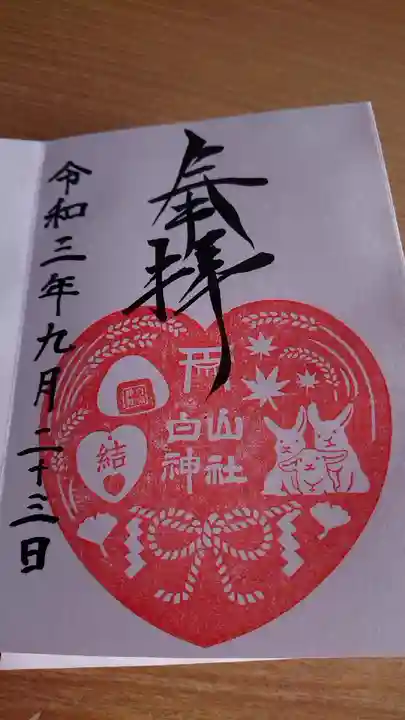 奉拝
令和三年九月二十三日
白山
神社
結